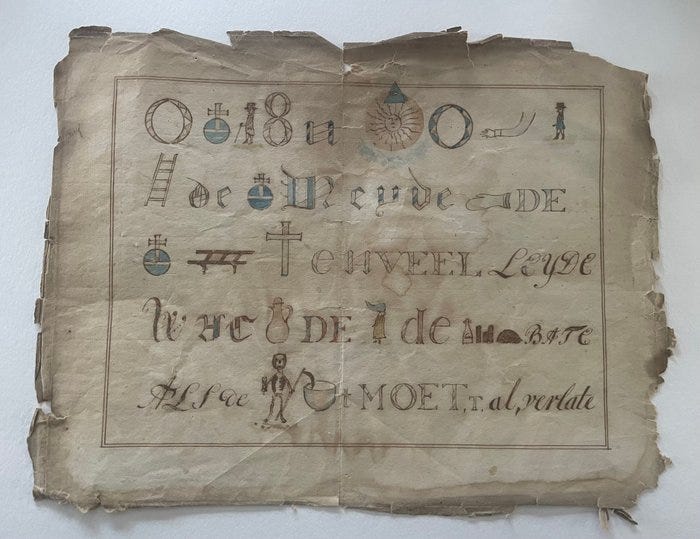 O 8 n O
de Meyde DE
en VEEL LEYDE
DE de BATE
ALS de t MOET, T. al, verlate